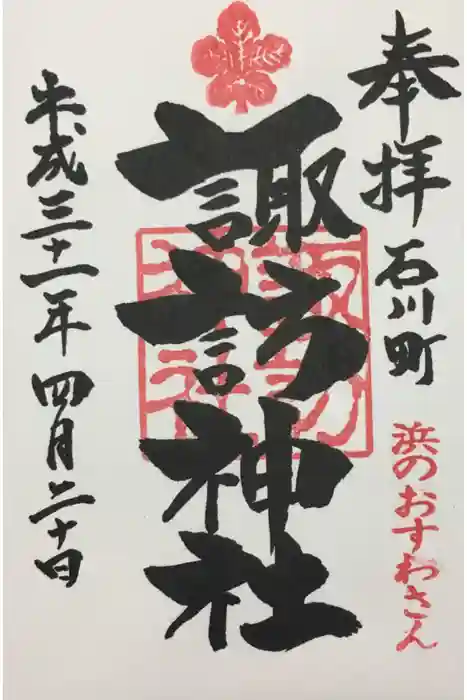 奉拝
石川町
浜のおすわさん
諏訪神社
平成三十一年四月二十日